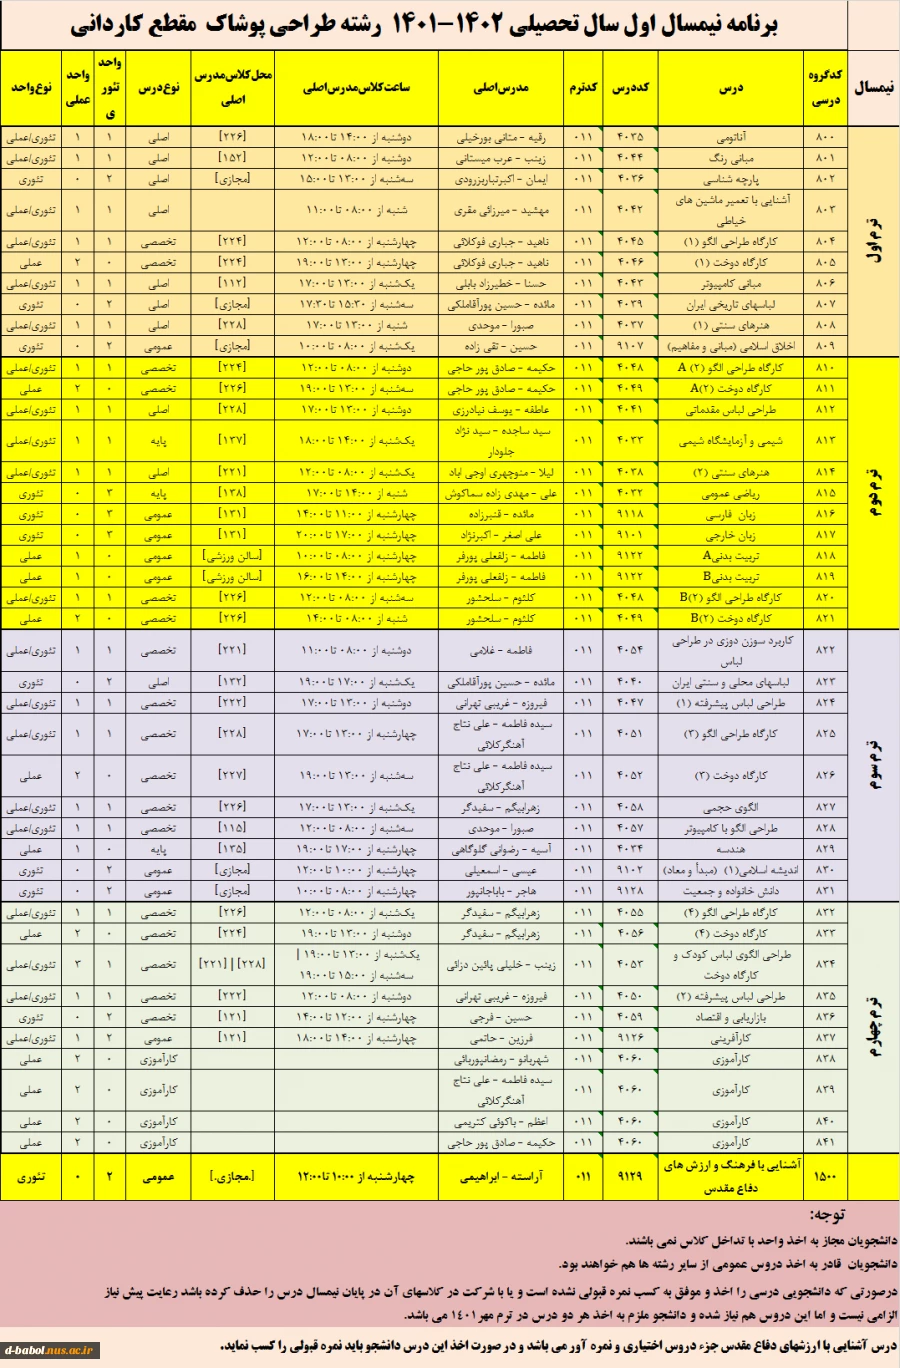 برنامه نیمسال اول سال تحصیلی ۱۴۰۲-۱۴۰۱ رشته طراحی پوشاک مقطع کاردانی
نیمسال | کدگروه درسی | درس | کددرس | کدترم | مدرس‌اصلی | ساعت‌کلاس‌مدرس‌اصلی | محل‌کلاس‌مدرس اصلی | نوع‌درس | واحد تئوری | واحد عملی | نوع‌واحد
ترم اول
۸۰۰ آناتومی ۴۰۳۵ ۰۱۱ رقیه - متانی بورخیلی دوشنبه از ۱۴:۰۰ تا ۱۸:۰۰ [۲۲۶] اصلی ۱ ۱ تئوری/عملی
۸۰۱ مبانی رنگ ۴۰۴۴ ۰۱۱ زینب - عرب میستانی دوشنبه از ۰۸:۰۰ تا ۱۲:۰۰ [۱۵۲] اصلی ۱ ۱ تئوری/عملی
۸۰۲ پارچه شناسی ۴۰۳۶ ۰۱۱ ایمان - اکبرتباریزرودی سه‌شنبه از ۱۳:۰۰ تا ۱۵:۰۰ [مجازی] اصلی ۲ ۰ تئوری
۸۰۳ آشنایی با تعمیر ماشین های خیاطی ۴۰۴۲ ۰۱۱ مهشید - میرزائی مقری شنبه از ۰۸:۰۰ تا ۱۱:۰۰ اصلی ۱ ۱ تئوری/عملی
۸۰۴ کارگاه طراحی الگو (۱) ۴۰۴۵ ۰۱۱ ناهید - جباری فوکلائی چهارشنبه از ۰۸:۰۰ تا ۱۲:۰۰ [۲۲۴] تخصصی ۱ ۱ تئوری/عملی
۸۰۵ کارگاه دوخت (۱) ۴۰۴۶ ۰۱۱ ناهید - جباری فوکلائی چهارشنبه از ۱۳:۰۰ تا ۱۹:۰۰ [۲۲۴] تخصصی ۰ ۲ عملی
۸۰۶ مبانی کامپیوتر ۴۰۴۳ ۰۱۱ حسنا - خطیرزاد بابلی یک‌شنبه از ۱۳:۰۰ تا ۱۷:۰۰ [۱۱۲] اصلی ۱ ۱ تئوری/عملی
۸۰۷ لباسهای تاریخی ایران ۴۰۳۹ ۰۱۱ مائده - حسین پورآقاملکی سه‌شنبه از ۱۵:۳۰ تا ۱۷:۳۰ [مجازی] اصلی ۲ ۰ تئوری
۸۰۸ هنرهای سنتی (۱) ۴۰۳۷ ۰۱۱ صبورا - موحدی شنبه از ۱۳:۰۰ تا ۱۷:۰۰ [۲۲۸] اصلی ۱ ۱ تئوری/عملی
۸۰۹ اخلاق اسلامی (مبانی و مفاهیم) ۹۱۰۷ ۰۱۱ حسین - تقی زاده یک‌شنبه از ۰۸:۰۰ تا ۱۰:۰۰ [مجازی] عمومی ۲ ۰ تئوری
ترم دوم
۸۱۰ کارگاه طراحی الگو (۲) A ۴۰۴۸ ۰۱۱ حکیمه - صادق پور حاجی دوشنبه از ۰۸:۰۰ تا ۱۲:۰۰ [۲۲۴] تخصصی ۱ ۱ تئوری/عملی
۸۱۱ کارگاه دوخت (۲)A ۴۰۴۹ ۰۱۱ حکیمه - صادق پور حاجی سه‌شنبه از ۱۳:۰۰ تا ۱۹:۰۰ [۲۲۶] تخصصی ۰ ۲ عملی
۸۱۲ طراحی لباس مقدماتی ۴۰۴۱ ۰۱۱ عاطقه - یوسف نیادرزی دوشنبه از ۱۳:۰۰ تا ۱۷:۰۰ [۲۲۸] اصلی ۱ ۱ تئوری/عملی
۸۱۳ شیمی و آزمایشگاه شیمی ۴۰۳۳ ۰۱۱ سید ساجده - سید نژاد جلودار یک‌شنبه از ۱۴:۰۰ تا ۱۸:۰۰ [۱۳۷] پایه ۱ ۱ تئوری/عملی
۸۱۴ هنرهای سنتی (۲) ۴۰۳۸ ۰۱۱ لیلا - منوچهری اوجی اباد یک‌شنبه از ۰۸:۰۰ تا ۱۲:۰۰ [۲۲۱] اصلی ۱ ۱ تئوری/عملی
۸۱۵ ریاضی عمومی ۴۰۳۲ ۰۱۱ علی - مهدی زاده سماکوش شنبه از ۱۴:۰۰ تا ۱۷:۰۰ [۱۳۸] پایه ۳ ۰ تئوری
۸۱۶ زبان فارسی ۹۱۱۸ ۰۱۱ مائده - قنبرزاده چهارشنبه از ۱۱:۰۰ تا ۱۴:۰۰ [۱۳۱] عمومی ۳ ۰ تئوری
۸۱۷ زبان خارجی ۹۱۰۱ ۰۱۱ علی اصغر - اکبرنژاد چهارشنبه از ۱۷:۰۰ تا ۲۰:۰۰ [۱۳۱] عمومی ۳ ۰ تئوری
۸۱۸ تربیت بدنیA ۹۱۲۲ ۰۱۱ فاطمه - زلفعلی پورفر چهارشنبه از ۰۸:۰۰ تا ۱۰:۰۰ [سالن ورزشی] عمومی ۰ ۱ عملی
۸۱۹ تربیت بدنیB ۹۱۲۲ ۰۱۱ فاطمه - زلفعلی پورفر چهارشنبه از ۱۴:۰۰ تا ۱۶:۰۰ [سالن ورزشی] عمومی ۰ ۱ عملی
۸۲۰ کارگاه طراحی الگو (۲)B ۴۰۴۸ ۰۱۱ کلثوم - سلحشور سه‌شنبه از ۰۸:۰۰ تا ۱۲:۰۰ [۲۲۶] تخصصی ۱ ۱ تئوری/عملی
۸۲۱ کارگاه دوخت (۲)B ۴۰۴۹ ۰۱۱ کلثوم - سلحشور شنبه از ۰۸:۰۰ تا ۱۴:۰۰ [۲۲۶] تخصصی ۰ ۲ عملی
ترم سوم
۸۲۲ کاربرد سوزن دوزی در طراحی لباس ۴۰۵۴ ۰۱۱ فاطمه - غلامی دوشنبه از ۰۸:۰۰ تا ۱۱:۰۰ [۲۲۱] تخصصی ۱ ۱ تئوری/عملی
۸۲۳ لباسهای محلی و سنتی ایران ۴۰۴۰ ۰۱۱ مائده - حسین پورآقاملکی یک‌شنبه از ۱۷:۰۰ تا ۱۹:۰۰ [۱۳۲] اصلی ۲ ۰ تئوری
۸۲۴ طراحی لباس پیشرفته (۱) ۴۰۴۷ ۰۱۱ فیروزه - غریبی تهرانی دوشنبه از ۱۳:۰۰ تا ۱۷:۰۰ [۲۲۲] تخصصی ۱ ۱ تئوری/عملی
۸۲۵ کارگاه طراحی الگو (۳) ۴۰۵۱ ۰۱۱ سیده فاطمه - علی نتاج آهنگرکلائی چهارشنبه از ۱۳:۰۰ تا ۱۷:۰۰ [۲۲۸] تخصصی ۱ ۱ تئوری/عملی
۸۲۶ کارگاه دوخت (۳) ۴۰۵۲ ۰۱۱ سیده فاطمه - علی نتاج آهنگرکلائی سه‌شنبه از ۱۳:۰۰ تا ۱۹:۰۰ [۲۲۷] تخصصی ۰ ۲ عملی
۸۲۷ الگوی حجمی ۴۰۵۸ ۰۱۱ زهرابیگم - سفیدگر یک‌شنبه از ۱۳:۰۰ تا ۱۷:۰۰ [۲۲۶] تخصصی ۱ ۱ تئوری/عملی
۸۲۸ طراحی الگو با کامپیوتر ۴۰۵۷ ۰۱۱ صبورا - موحدی سه‌شنبه از ۰۸:۰۰ تا ۱۲:۰۰ [۱۱۵] تخصصی ۱ ۱ تئوری/عملی
۸۲۹ هندسه ۴۰۳۴ ۰۱۱ آسیه - رضوانی گلوگاهی چهارشنبه از ۱۷:۰۰ تا ۱۹:۰۰ [۱۳۵] پایه ۰ ۱ عملی
۸۳۰ اندیشه اسلامی(۱) (مبدأ و معاد) ۹۱۰۲ ۰۱۱ عیسی - اسمعیلی چهارشنبه از ۱۰:۰۰ تا ۱۲:۰۰ [مجازی] عمومی ۲ ۰ تئوری
۸۳۱ دانش خانواده و جمعیت ۹۱۲۸ ۰۱۱ هاجر - باباجانپور چهارشنبه از ۰۸:۰۰ تا ۱۰:۰۰ [مجازی] عمومی ۲ ۰ تئوری
ترم چهارم
۸۳۲ کارگاه طراحی الگو (۴) ۴۰۵۵ ۰۱۱ زهرابیگم - سفیدگر یک‌شنبه از ۰۸:۰۰ تا ۱۲:۰۰ [۲۲۶] تخصصی ۱ ۱ تئوری/عملی
۸۳۳ کارگاه دوخت (۴) ۴۰۵۶ ۰۱۱ زهرابیگم - سفیدگر دوشنبه از ۱۳:۰۰ تا ۱۹:۰۰ [۲۲۴] تخصصی ۰ ۲ عملی
۸۳۴ طراحی الگوی لباس کودک و کارگاه دوخت ۴۰۵۳ ۰۱۱ زینب - خلیلی پائین دزائی یک‌شنبه از ۱۳:۰۰ تا ۱۹:۰۰ | سه‌شنبه از ۱۵:۰۰ تا ۱۹:۰۰ [۲۲۸] | [۲۲۱] تخصصی ۱ ۳ تئوری/عملی
۸۳۵ طراحی لباس پیشرفته (۲) ۴۰۵۰ ۰۱۱ فیروزه - غریبی تهرانی دوشنبه از ۰۸:۰۰ تا ۱۲:۰۰ [۲۲۲] تخصصی ۱ ۱ تئوری/عملی
۸۳۶ بازاریابی و اقتصاد ۴۰۵۹ ۰۱۱ حسین - فرجی چهارشنبه از ۱۲:۰۰ تا ۱۴:۰۰ [۱۲۱] تخصصی ۲ ۰ تئوری
۸۳۷ کارآفرینی ۹۱۲۶ ۰۱۱ فرزین - حاتمی چهارشنبه از ۱۴:۰۰ تا ۱۸:۰۰ [۱۲۱] عمومی ۲ ۱ تئوری/عملی
۸۳۸ کارآموزی ۴۰۶۰ ۰۱۱ شهربانو - رمضانپوربائی کارآموزی ۰ ۲ عملی
۸۳۹ کارآموزی ۴۰۶۰ ۰۱۱ سیده فاطمه - علی نتاج آهنگرکلائی کارآموزی ۰ ۲ عملی
۸۴۰ کارآموزی ۴۰۶۰ ۰۱۱ اعظم - باکوئی کتریمی کارآموزی ۰ ۲ عملی
۸۴۱ کارآموزی ۴۰۶۰ ۰۱۱ حکیمه - صادق پور حاجی کارآموزی ۰ ۲ عملی
۱۵۰۰ آشنایی با فرهنگ و ارزش های دفاع مقدس ۹۱۲۹ ۰۱۱ آراسته - ابراهیمی چهارشنبه از ۱۰:۰۰ تا ۱۲:۰۰ [.مجازی.] عمومی ۲ ۰ تئوری
توجه:
دانشجویان مجاز به اخذ واحد با تداخل کلاس نمی باشند.
دانشجویان قادر به اخذ دروس عمومی از سایر رشته ها هم خواهند بود.
درصورتی که دانشجویی درسی را اخذ و موفق به کسب نمره قبولی نشده است و یا با شرکت در کلاسهای آن در پایان نیمسال درس را حذف کرده باشد رعایت پیش نیاز
الزامی نیست و اما این دروس هم نیاز شده و دانشجو ملزم به اخذ هر دو درس در ترم مهر ۱۴۰۱ می باشد.
درس آشنایی با ارزشهای دفاع مقدس جزء دروس اختیاری و نمره آور می باشد و در صورت اخذ این درس دانشجو باید نمره قبولی را کسب نماید.
d-babol.nus.ac.ir